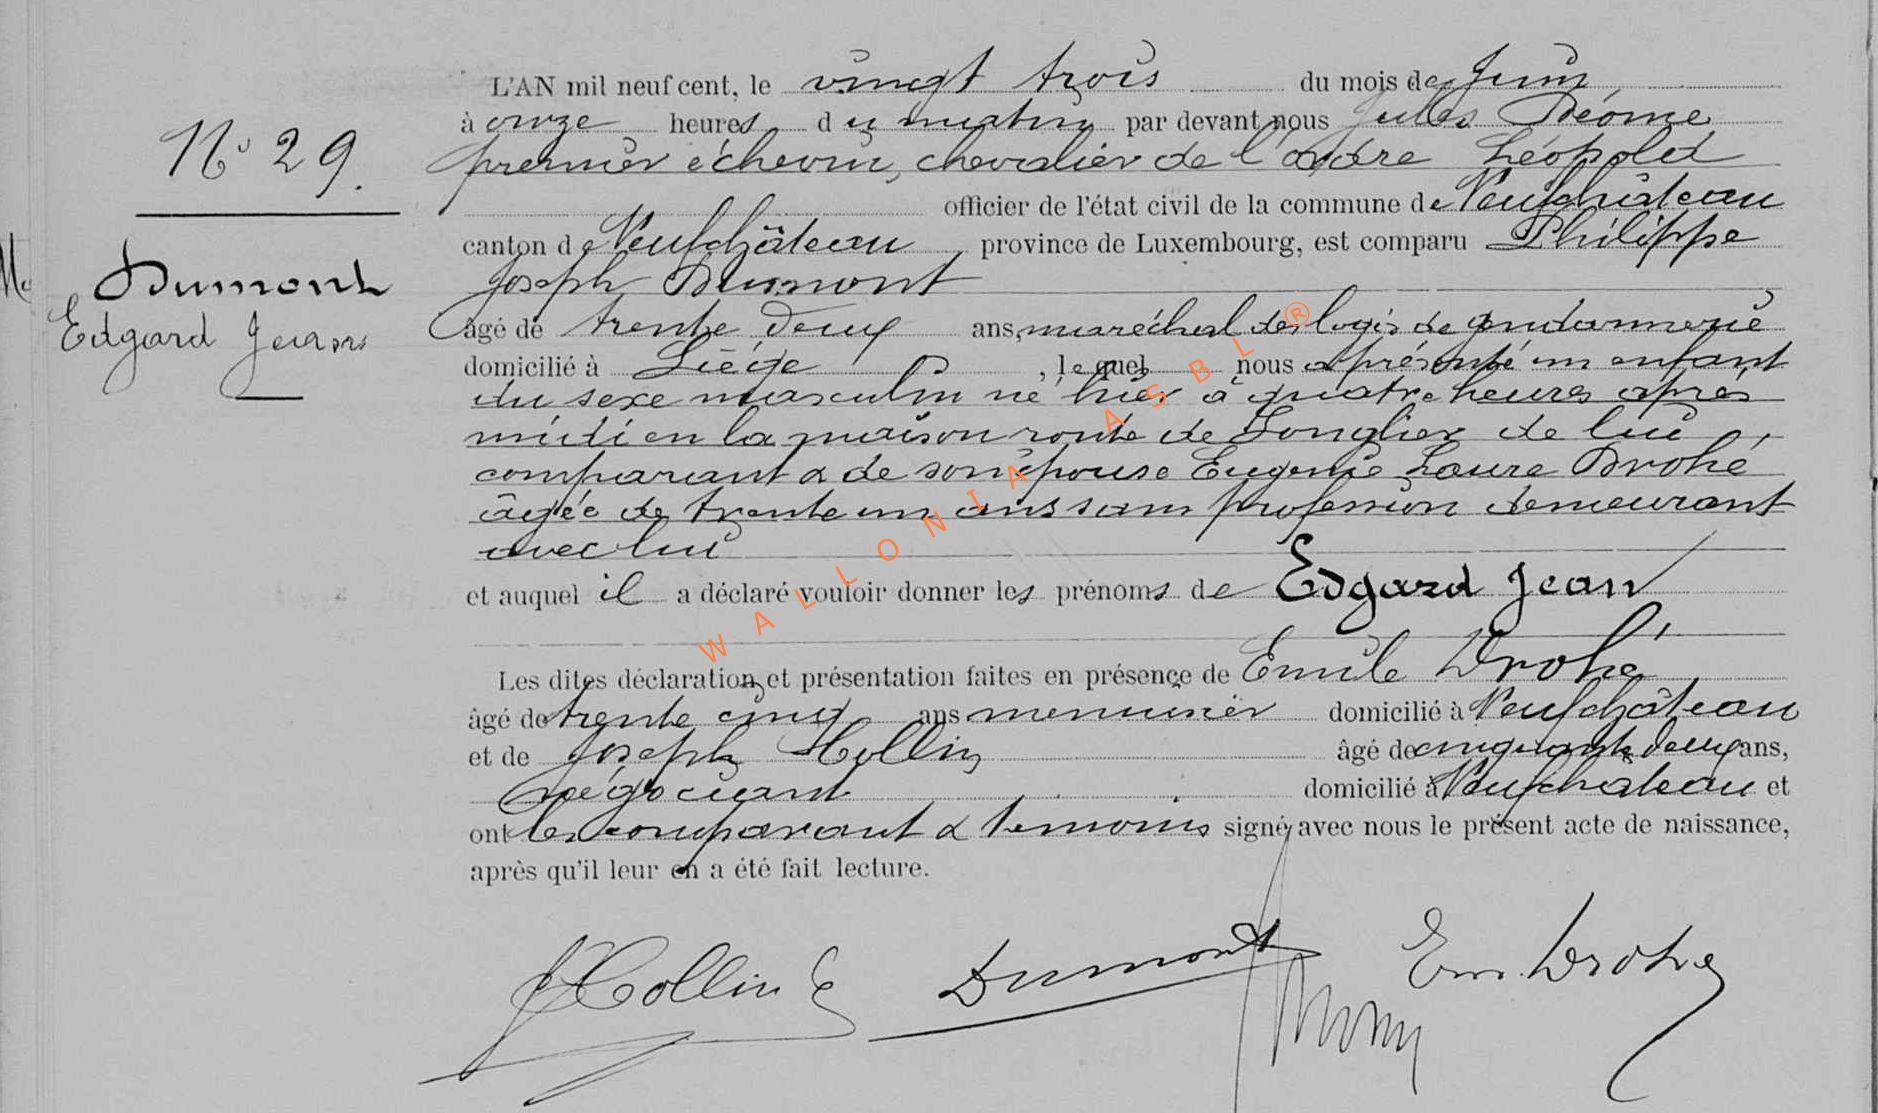 L'AN mil neuf cent, le vingt trois du mois de Juin
à onze heures du matin par devant nous Jules Déome
N° 29.
premier échevin, chevalier de l'ordre Léopold
officier de l'état civil de la commune de Neufchâteau
canton de Neufchâteau province de Luxembourg, est comparu Philippe
Dumont
Joseph Dumont
Edgard Jean
âgé de trente deux ans, maréchal des logis de gendarmerie
domicilié à Liége, lequel nous a présenté un enfant
du sexe masculin né hier à quatre heures après
midi en la maison route de Longlier de lui
comparant & de son épouse Eugénie Laure Drohé
âgée de trente un ans sans profession demeurant
avec lui
et auquel il a déclaré vouloir donner les prénoms de Edgard Jean
Les dites déclaration et présentation faites en présence de Emile Drohé
âgé de trente cinq ans menuisier domicilié à Neufchâteau
et de Joseph Hollin âgé de cinquante deux ans,
négociant domicilié à Neufchâteau et
ont les comparant & témoins signé avec nous le présent acte de naissance,
après qu'il leur en a été fait lecture.
JHollin Dumont Em. Drohé
WALLONIA ASBL ®